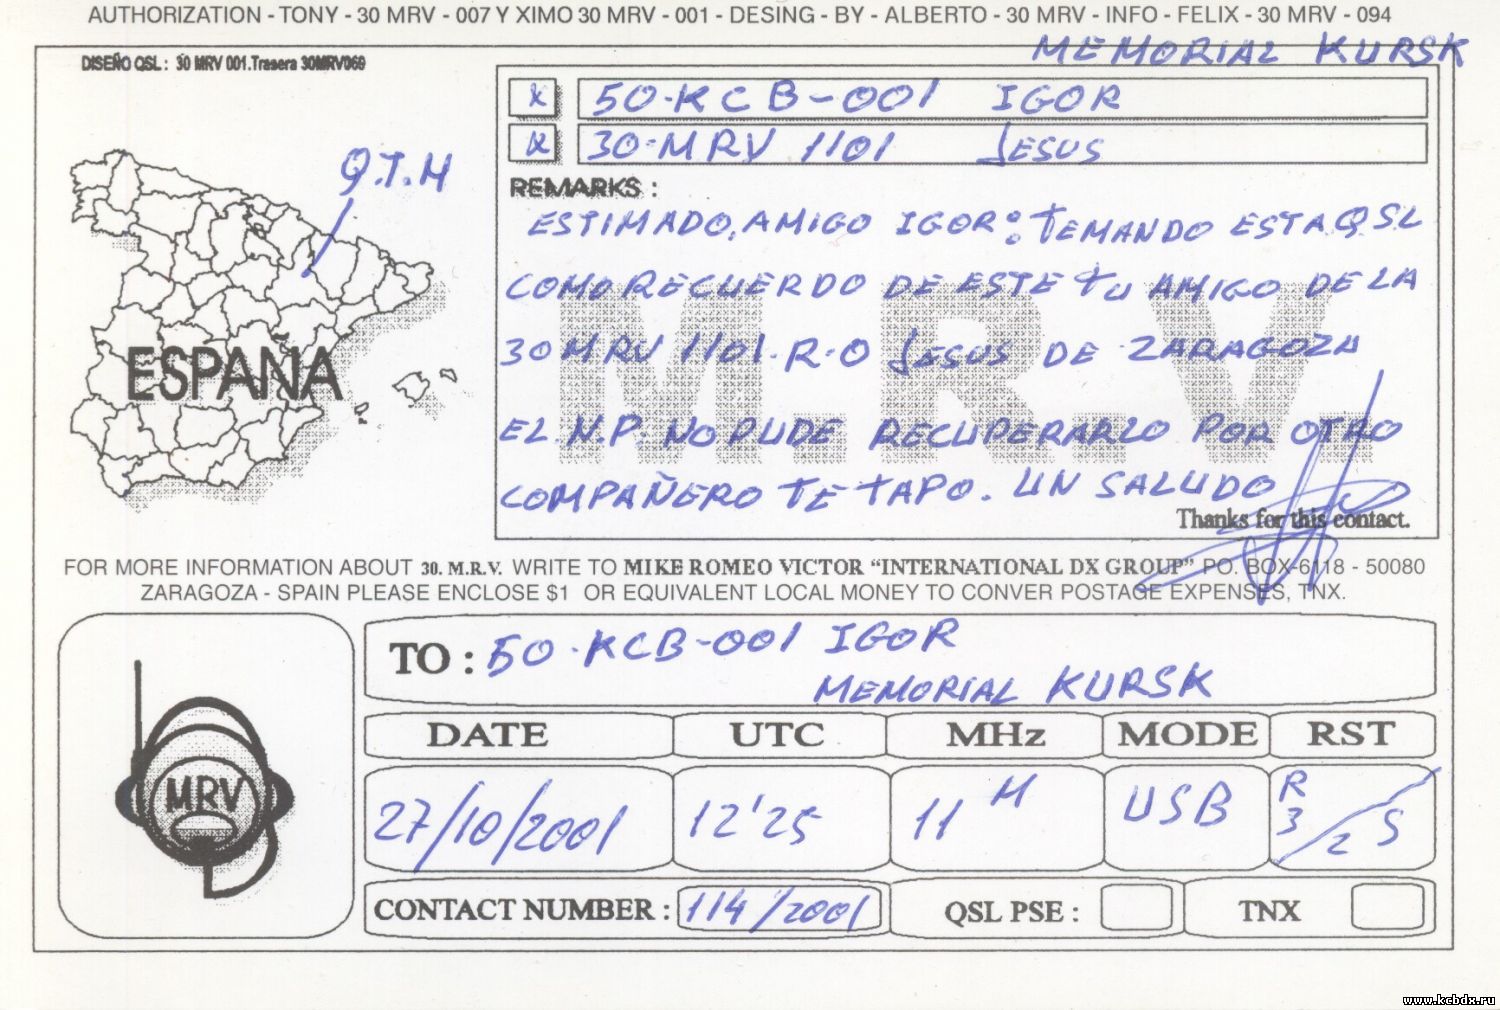 AUTHORIZATION - TONY - 30 MRV - 007 Y XIMO 30 MRV - 001 - DESING - BY - ALBERTO - 30 MRV - INFO - FELIX - 30 MRV - 094
MEMORIAL KURSK
DISEÑO QSL : 30 MRV 001.Trasera 30MRV069
X 50-KCB-001 IGOR
X 30-MRV 1101 JESUS
Q.T.H
REMARKS :
ESTIMADO, AMIGO IGOR: TEMANDO ESTA QSL
COMO RECUERDO DE ESTE TU AMIGO DE LA
30 MRV 1101-R-O JESUS DE ZARAGOZA
EL N.P. NO PUDE RECUPERARLO POR OTRO
COMPAÑERO TE TAPO. UN SALUDO
M.R.V.
ESPAÑA
Thanks for this contact.
FOR MORE INFORMATION ABOUT 30. M.R.V. WRITE TO MIKE ROMEO VICTOR “INTERNATIONAL DX GROUP” PO. BOX-6118 - 50080
ZARAGOZA - SPAIN PLEASE ENCLOSE $1 OR EQUIVALENT LOCAL MONEY TO CONVER POSTAGE EXPENSES, TNX.
TO : 50-KCB-001 IGOR
MEMORIAL KURSK
MRV
DATE UTC MHz MODE RST
27/10/2001 12'25 11 M USB R 3/2 S
CONTACT NUMBER : 114/2001 QSL PSE : TNX
www.kcbdx.ru